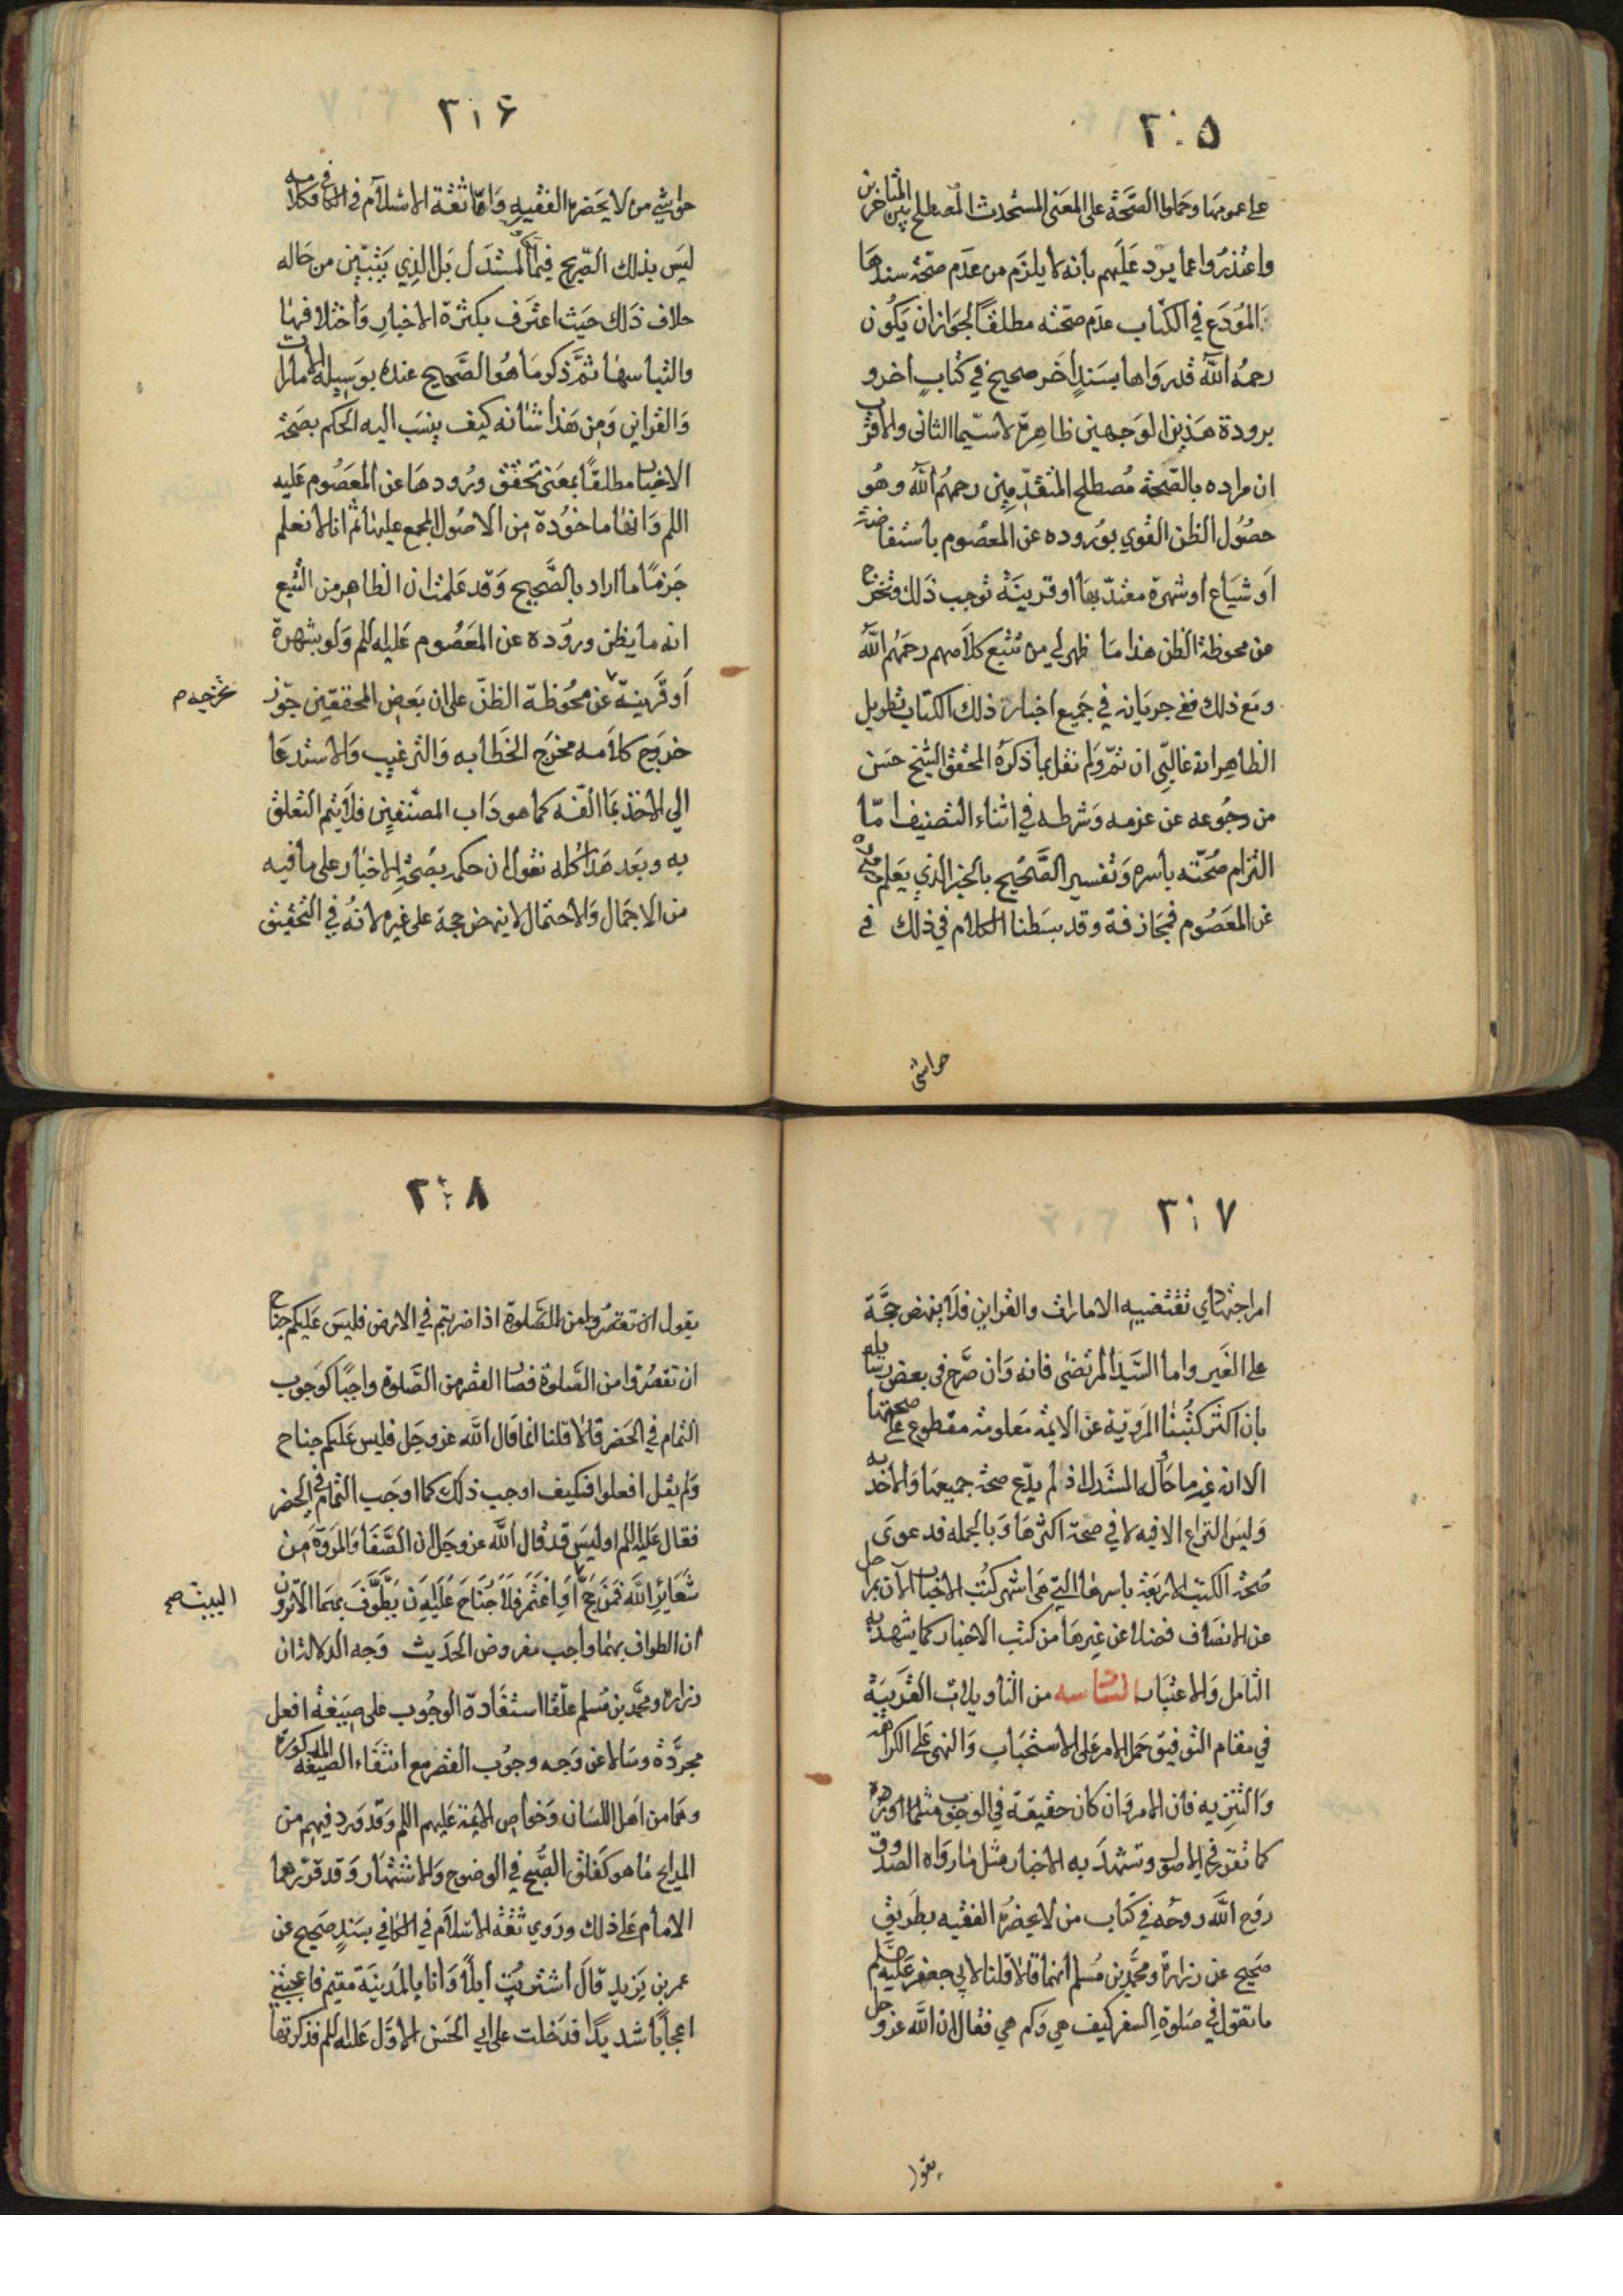 ٣٠٥
على عمومها وحملوا الصحّة على المعنى المستحدث المصطلح بين المتأخرين
واعتذروا عما يرد عَلَيهم بانه لا يلزم من عدَم صحّة سندها
المُودَع في الكتاب عدَم صحّته مطلقاً لجواز ان يَكُون
رحمهُ اللّه قد رَوَاها بسَندٍ اخَر صحيح في كتابٍ اخر و
برودة هَذين الوَجهين ظاهِرة لاسيّما الثانى والاقرب
ان مراده بالصّحة مُصطلح المتقدّمِين رحمهُم اللّه وهُو
حصُول الظن القوي بوُروده عن المعصُوم باستفاضة
اَو شيَاع او شهرة معتدّ بهَا او قرينَة توجب ذَلك وتخرج
عن محوظة الظن هذا مَا ظهر لي من تتبع كلاَمهم رحمَهُم اللّه
ومَع ذلك ففي جريَانه في جَميع اخبار ذلك الكتاب تطويل
الظاهِر انه غالبّي ان تمّ ولَم نقل بما ذكرَهُ المحقق الشيخ حسَن
من رجُوعه عن عزمه وَشرطه في اثناء التصنيف امّا
التزام صُحّته باسره وَتفسير الصَّحيح بالخبر الذي يَعلم صدوره
عَن المعَصُوم فمجَازفة وقد بسَطنا الكلام في ذلك في
حواشى
٣٠٦
حواشي من لا يَحضرهُ الفقيهِ وَامّا ثقة الاسلاَم في الكافي فكلامه
ليَس بذلك الصّريح فيما المستدَل بَل الذِي يَتبيّن من حَاله
خلاف ذَلك حيَث اعترَف بكثرة الاخبارِ وَاختلافهَا
والتباسهَا ثمَّ ذكر مَا هُو الصَّحيح عندهُ بوَسيلة الامارات
وَالقراين وَمن هَذا شانه كيف ينسَب اليه الحكم بصَحّة
الاخبار مطلقًا بمعَنى تحقق ورُودهَا عن المعَصُوم عَليه
اللم وَانهَا ماخوُدة من الاصُول المجمع عليهَا ثم انا لا نعلم
جَزمًا ما اراد بالصَّحيح وَقد عَلمت ان الظاهِر من التتبع
انه ما يظن وروُده عن المعَصُوم عَليه اللم وَلو بشهرة
اَو قَرينة عن محُوظة الظنّ على ان بَعض المحققين جوّز
تخرجه م
خرُوج كلاَمه مخرَج الخطَابه وَالترغيب وَالاستدعَا
الي الاخذ بمَا الّفه كما هو دَاب المصنّفين فلاَ يتم التعلق
به وبعَد هَذا كله نقول ان حكمه بصُحّة الاخبار على ما فيه
من الاجمَال وَالاحتمال لا ينهض حجة على غيره لانهُ في التحقيق
٣٠٧
امر اجتهادي تقتضيه الامارات والقراين فلاَ ينهض حجَّة
على الغَير واما السَّيد المرتضَى فانه وَان صرَّح في بعض رسايله
بان اكثر كتُبنا المروَيّة عن الايمّة مَعلومة مقطوع على صحتها
الا انه غيَر ما حَاوله المستدل اذ لم يدّع صحة جميعهَا وَالاخذ به
وَليس النزاع الا فيه لا في صحّة اكثرهَا وَبالجمله فدعوى
صُحة الكتب الاربعَة باسرها التّي هَى اشهر كتُب الاخبار الآن بمراحل
عن الانصَاف فضلا عن غيرهَا من كتب الاخبار كما يشهدَ به
التامل وَالاعتبَار السادسه من التاويلات القَريَبة
في مقام التوفيق حَمل الامر عَلى الاستحَبَاب وَالنهى عَلى الكراهة
وَالتنزيه فان الامر وَان كان حقيقة في الوجوب
كما تقرر في الاصول وتشهدَ به الاخبار مثل مَا رَوَاه الصدوق
روَح اللَّه روحَه في كتاب من لا يحضرُه الفقيه بطريق
صحَيح عن زرارة ومحَّد بن مُسلم انهمَا قالا قلنا لابي جعفر عَليه
ما تقول في صَلوة السفر كيف هي وَكم هي فقال ان اللَّه عز وجل
يقول
٣٠٨
يقول ان تقصرُوا من الصَّلوة اذا ضربتم في الارض فليسَ عَليكم جناح
ان تقصُرَوا من الصَّلوة فصار القصر من الصَّلوة واجبًا كوَجوب
التمام في الحَضر قالا قلنا انما قال اللَّه عز وجَل فليس عَليكم جناح
وَلم يقل افعلوا فكيف اوجب ذلك كما اوجَب التمام في الحضر
فقال عَليه اللم اوليَس قد قال اللَّه عز وجَل ان الصَّفَا وَالمَروَة مِن
شَعَايرِ اللَّه فمَن حَجَّ اَوِ اعْتَمَر فَلاَ جُنَاحَ عَلَيهِ اَن يَطَّوّفَ بِهِمَا الا ترون
البيت صح
ان الطواف بهمَا واجب مفروض الحَديث وَجه الدلالة ان
زرارة ومحَّد بن مُسلم علّقا استفَادة الوجُوب على صيَغة افعل
مجرَّدة وسالا عن وَجه وجوُب القصر مع انتفَاء الصيغة المذكورة
وهَما من اَهل اللسَان وَخواص الايمة عَليهم اللم وَقد وَرد فيهم من
المدايح مَا هو كفلق الصُّبح في الوضوح وَالاشتهَار وَقد قرّرهما
الامام عَلى ذلك ورَوي ثقة الاسلاَم في الكافي بسَندٍ صحَيح عن
عمر بن يَزيدٍ قال اشتريت ابلاً وَانا بالمَدينة مقيَم فاعجبتني
اعجاباً شديدًا فدَخلت على ابي الحَسَن الاوّل عَليه اللم فذكرتها